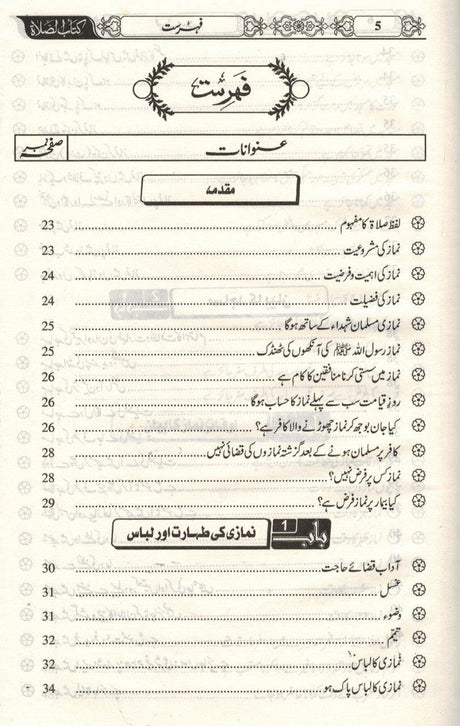 5 فہرست کتاب الصلاۃ
فہرست
عنوانات صفحہ نمبر
مقدمہ
لفظ صلاۃ کا مفہوم 23
نماز کی مشروعیت 23
نماز کی اہمیت و فرضیت 24
نماز کی فضیلت 24
نمازی مسلمان شہداء کے ساتھ ہوگا 25
نماز رسول اللہ ﷺ کی آنکھوں کی ٹھنڈک 25
نماز میں سستی کرنا منافقین کا کام ہے 26
روزِ قیامت سب سے پہلے نماز کا حساب ہوگا 26
کیا جان بوجھ کر نماز چھوڑنے والا کافر ہے؟ 26
کافر پر مسلمان ہونے کے بعد گزشتہ نمازوں کی قضائی نہیں 28
نماز کس پر فرض نہیں؟ 28
کیا بیمار پر نماز فرض ہے؟ 29
باب 1 نمازی کی طہارت اور لباس
آداب قضائے حاجت 30
غسل 31
وضوء 31
تیمّم 32
نمازی کا لباس 32
نمازی کا لباس پاک ہو 34